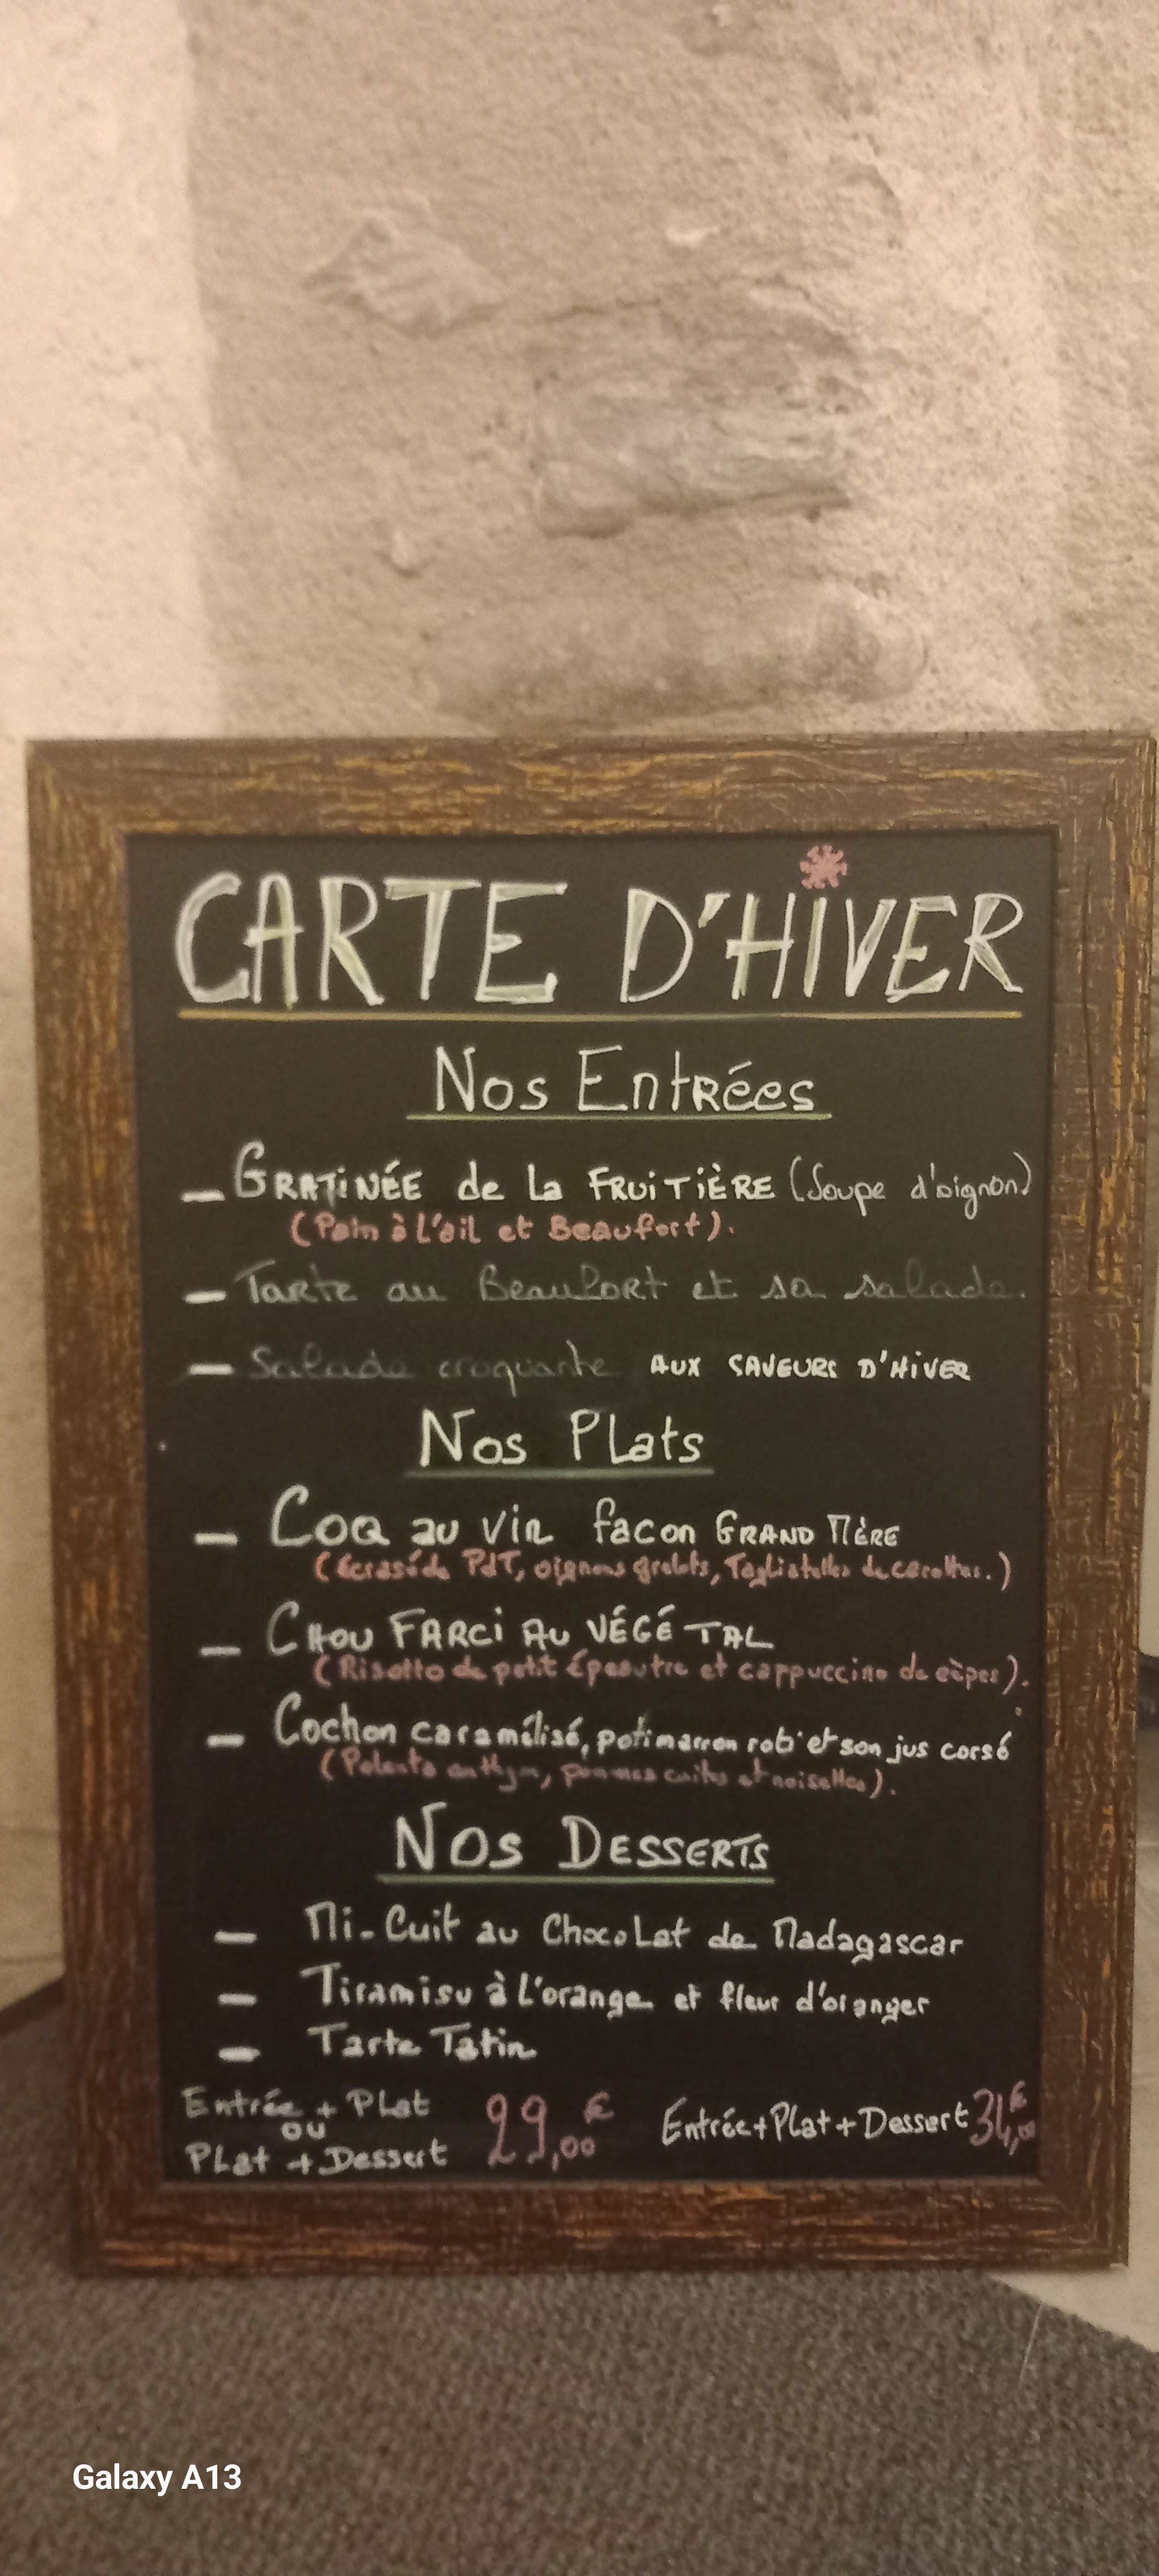 CARTE D'HIVER
Nos Entrées
- GRATINÉE de la FRUITIÈRE (Soupe d'oignon)
(Pain à l'ail et Beaufort).
- Tarte au Beaufort et sa salade.
- Salade croquante AUX SAVEURS D'HIVER
Nos Plats
- Coq au vin facon GRAND MÈRE
(Ecrasé de PdT, oignons grelots, Tagliatelles de carottes.)
- CHOU FARCI AU VÉGÉTAL
(Risotto de petit Épeautre et cappuccino de cèpes).
- Cochon caramélisé, potimarron roti et son jus corsé
(Polenta au thym, pommes cuites et noisettes).
NOS DESSERTS
- Mi-Cuit au Chocolat de Madagascar
- Tiramisu à l'orange et fleur d'oranger
- Tarte Tatin
Entrée + Plat
ou
Plat + Dessert
29,00€
Entrée+Plat+Dessert 34,00€
Galaxy A13